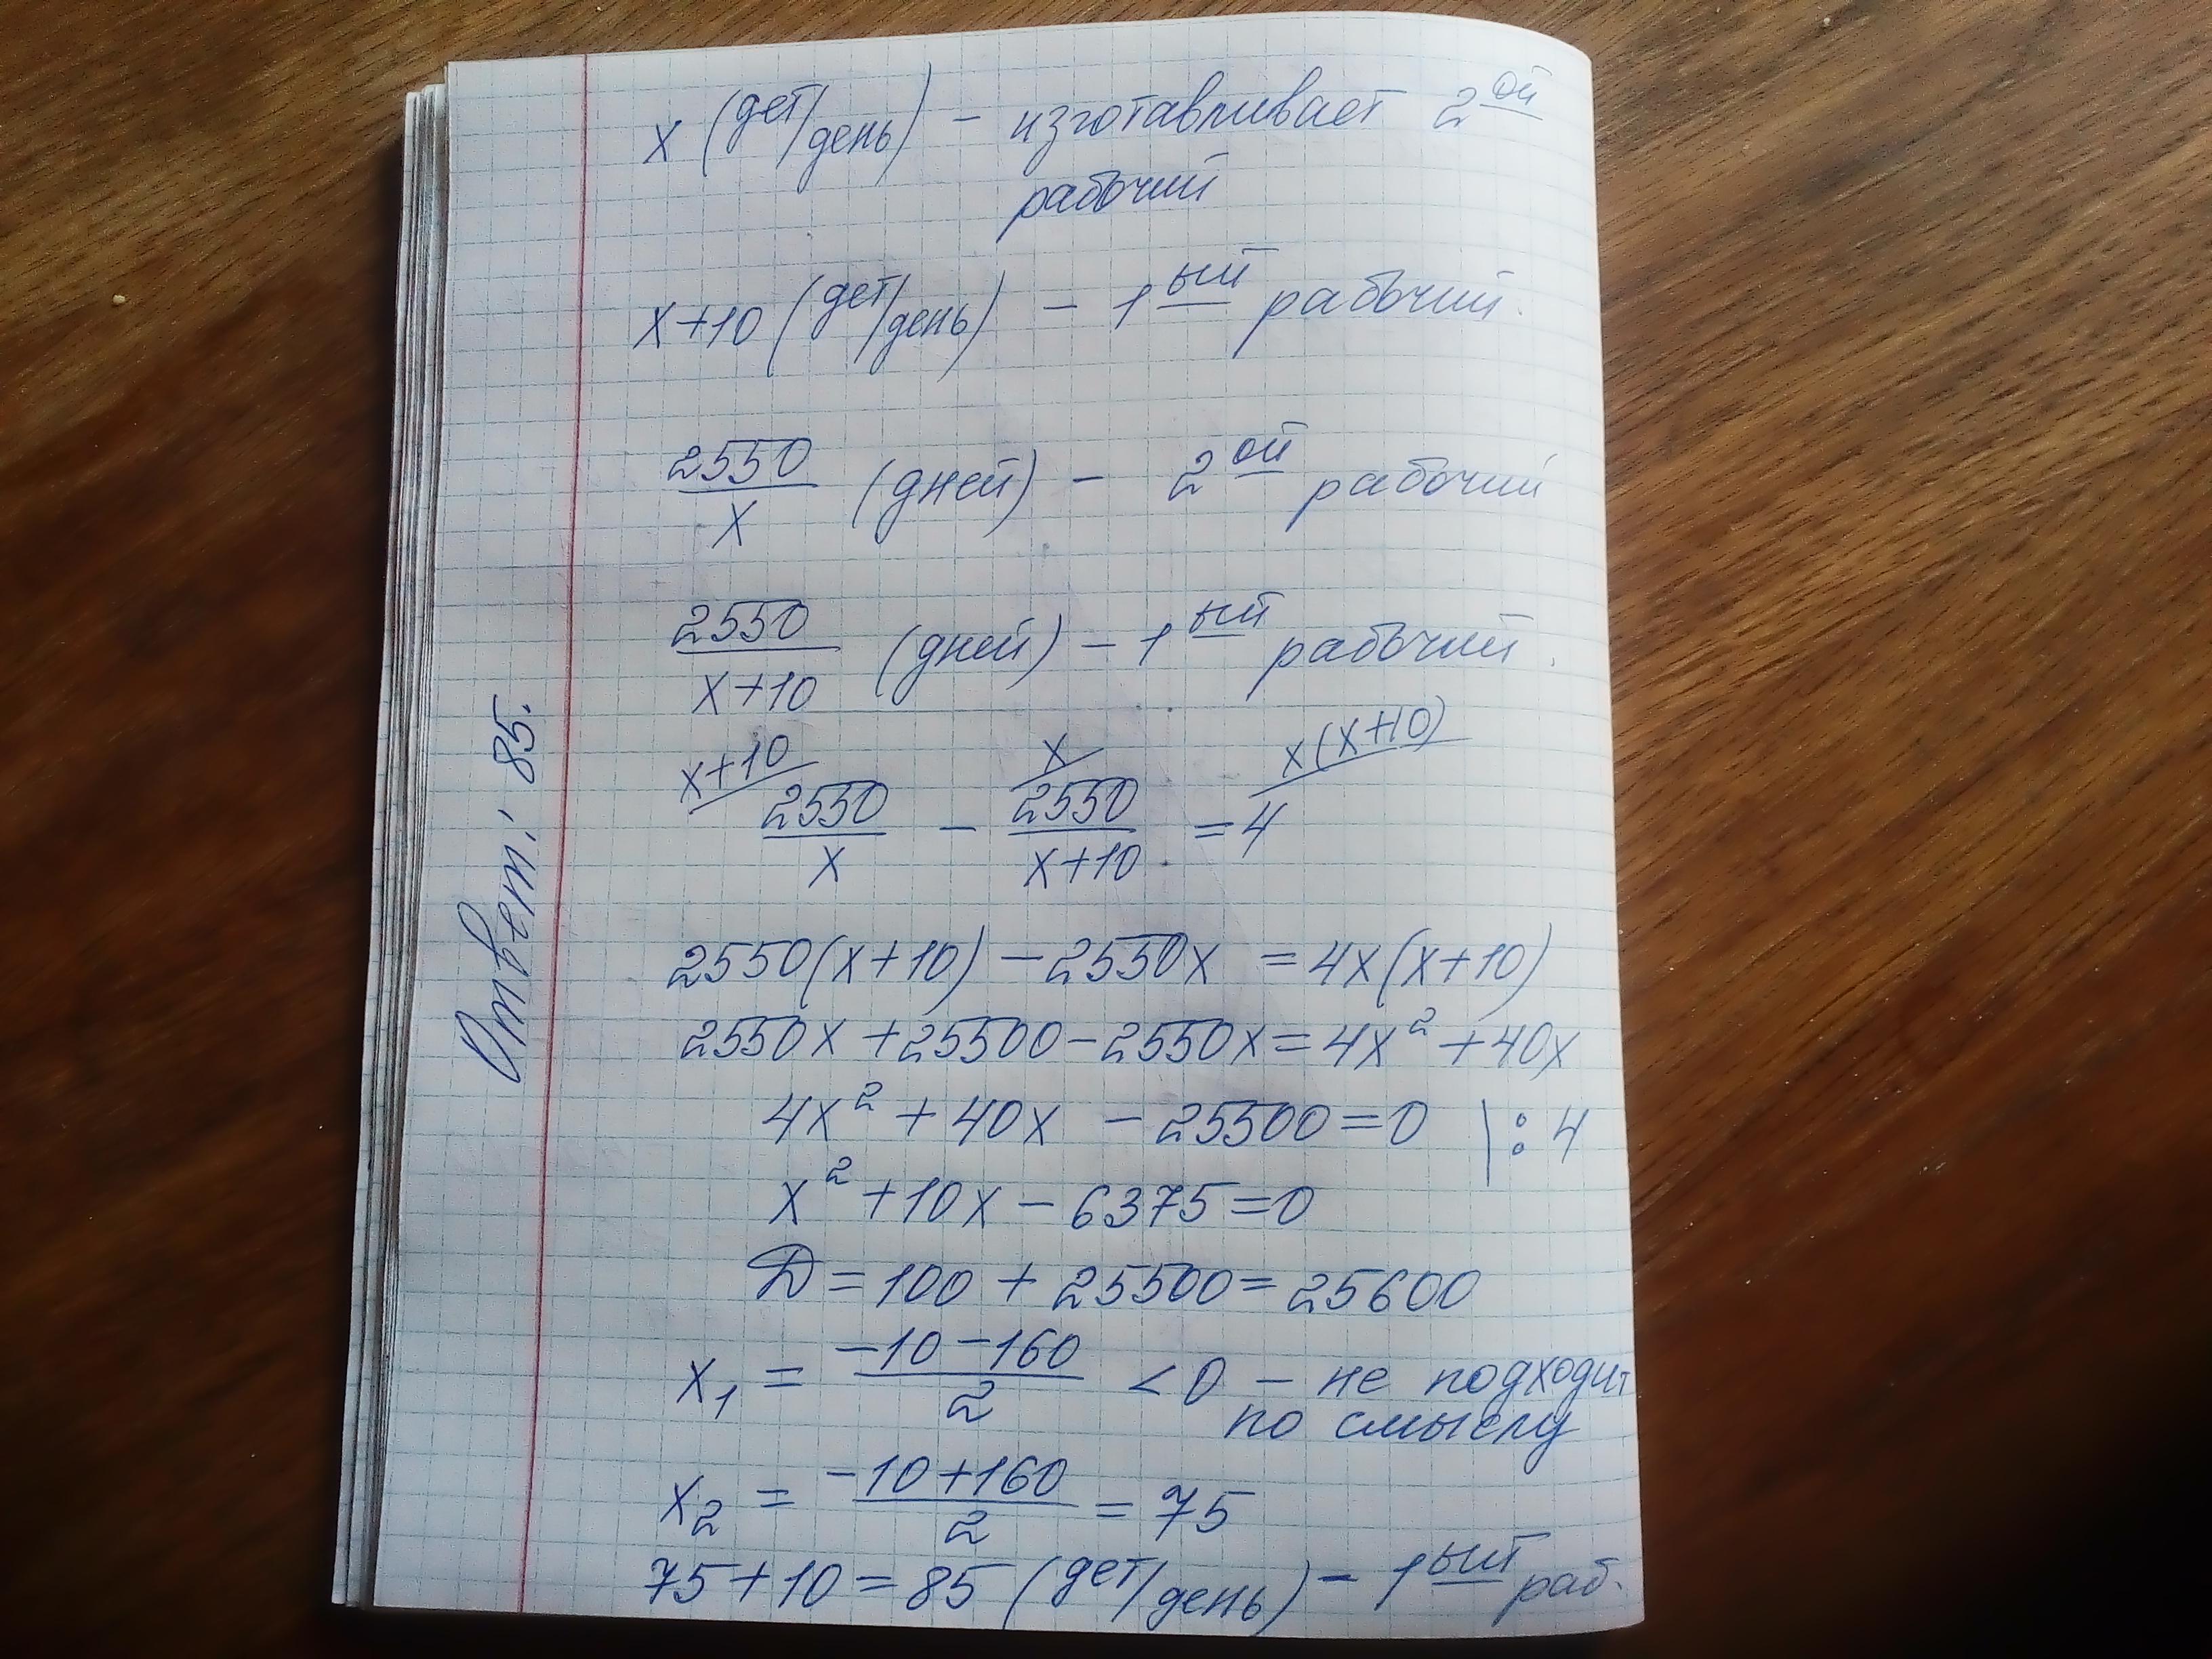 x (дет/день) - изготавливает 2ой
рабочий
x+10 (дет/день) - 1ый рабочий.
2550/x (дней) - 2ой рабочий
2550/x+10 (дней) - 1ый рабочий.
x+10 x x(x+10)
2550/x - 2550/x+10 = 4
2550(x+10) - 2550x = 4x(x+10)
2550x + 25500 - 2550x = 4x² + 40x
4x² + 40x - 25500 = 0 | : 4
x² + 10x - 6375 = 0
D = 100 + 25500 = 25600
x₁ = -10-160/2 < 0 - не подходит
по смыслу
x₂ = -10+160/2 = 75
75+10 = 85 (дет/день) - 1ый раб.
Ответ: 85.